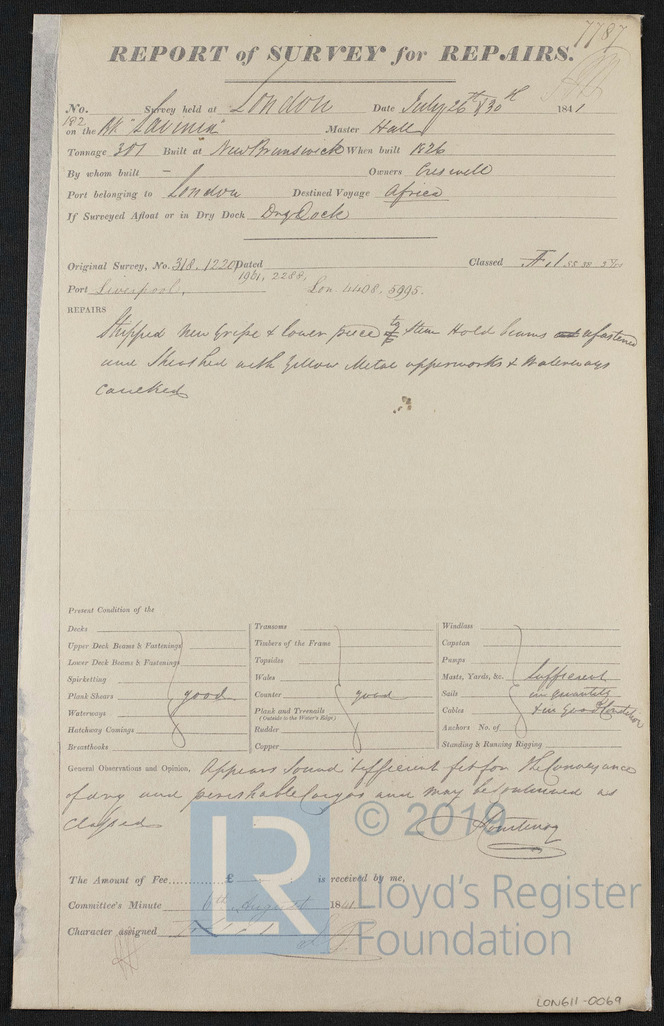 7787
REPORT of SURVEY for REPAIRS.
No. 192 Survey held at London Date July 26th & 30th 1841
on the Bk "Lavinia" Master Hall
Tonnage 301 Built at New Brunswick When built 1826
By whom built – Owners Creswell
Port belonging to London Destined Voyage Africa
If Surveyed Afloat or in Dry Dock Dry Dock
Original Survey, No. 318, 1220 Dated Classed Æ 1
1961, 2288,
Port Liverpool, Lon 4408, 5995.
REPAIRS
Stripped New Gripe & lower piece to Stem Hold beams refastened
and Sheathed with Yellow Metal upperworks & Waterways
caulked
Present Condition of the
Decks
Upper Deck Beams & Fastenings
Lower Deck Beams & Fastenings
Spirketting
Plank Shears good
Waterways
Hatchway Comings
Breasthooks
Transoms
Timbers of the Frame
Topsides
Wales
Counter good
Plank and Treenails
(Outside to the Water's Edge)
Rudder
Copper
Windlass
Capstan
Pumps
Masts, Yards, &c. Sufficient
Sails in quantity
Cables & in Good Condition
Anchors No. of
Standing & Running Rigging
General Observations and Opinion, Appears Sound & efficient fit for the Conveyance
of dry and perishable Cargos and may be continued as
Classed
Courtenay
The Amount of Fee......... £ is received by me,
Committee's Minute 6th August 1841
Character assigned
© 2019
LR
Lloyd's Register
Foundation
LON611-0069